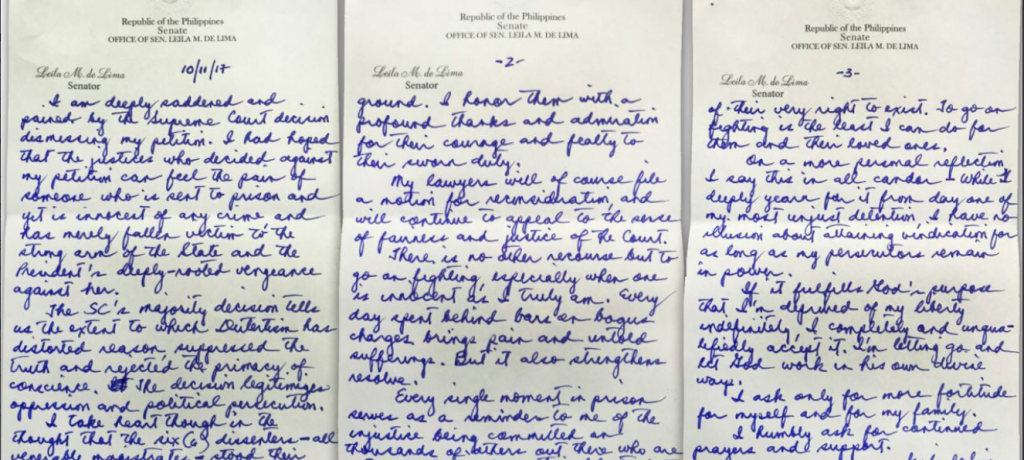 Republic of the Philippines
Senate
OFFICE OF SEN. LEILA M. DE LIMA
Leila M. de Lima
Senator
10/11/17
I am deeply saddened and
pained by the Supreme Court decision
dismissing my petition. I had hoped
that the justices who decided against
my petition can feel the pain of
someone who is sent to prison and
yet is innocent of any crime and
has merely fallen victim to the
strong arm of the State and the
President's deeply-rooted vengeance
against her.
The SC's majority decision tells
us the extent to which Dutertism has
distorted reason, suppressed the
truth and rejected the primacy of
conscience. The decision legitimizes
oppression and political persecution.
I take heart though in the
thought that the six (6) dissenters – all
venerable magistrates – stood their
Republic of the Philippines
Senate
OFFICE OF SEN. LEILA M. DE LIMA
-2-
Leila M. de Lima
Senator
ground. I honor them with a
profound thanks and admiration
for their courage and fealty to
their sworn duty.
My lawyers will of course file
a motion for reconsideration, and
will continue to appeal to the sense
of fairness and justice of the Court.
There is no other recourse but to
go on fighting, especially when one
is innocent as I truly am. Every
day spent behind bars on bogus
charges brings pain and untold
sufferings. But it also strengthens
resolve.
Every single moment in prison
serves as a reminder to me of the
injustice being committed on
thousands of others out there who are
Republic of the Philippines
Senate
OFFICE OF SEN. LEILA M. DE LIMA
-3-
Leila M. de Lima
Senator
of their very right to exist. To go on
fighting is the least I can do for
them and their loved ones.
On a more personal reflection,
I say this in all candor – While I
deeply yearn for it from day one of
my most unjust detention, I have no
illusion about attaining vindication for
as long as my persecutors remain
in power.
If it fulfills God's purpose
that I'm deprived of my liberty
indefinitely, I completely and unqua-
lifiedly accept it. I'm letting go and
let God work in his own divine
ways.
I ask only for more fortitude
for myself and for my family.
I humbly ask for continued
prayers and support.